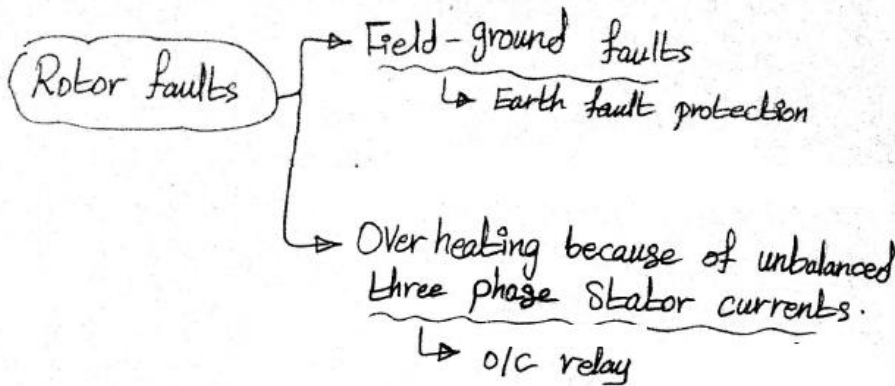 Rotor faults
Field-ground faults
Earth fault protection
Over heating because of unbalanced
three phase Stator currents.
O/C relay